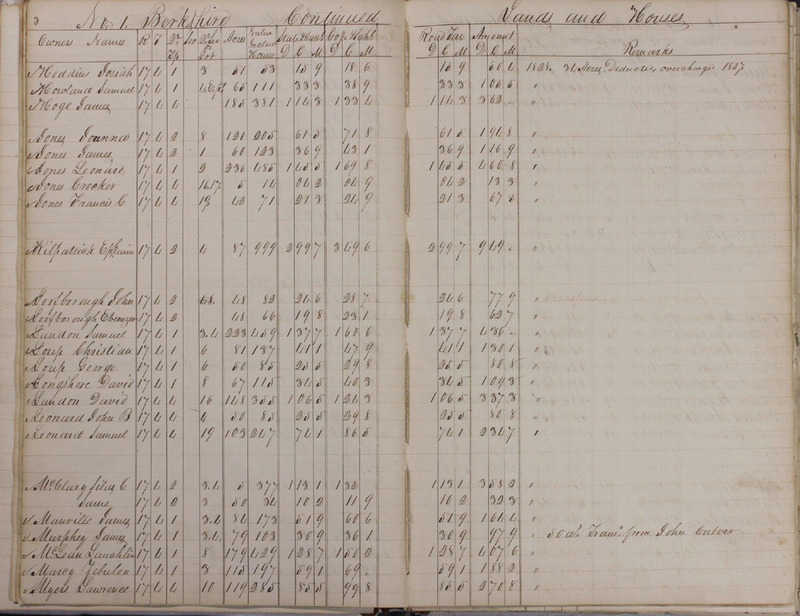 3 No. 1. Berkshire Continued Lands and Houses
Owners Names R T Qr Tp Sec Acres Value Inclu Houses State & Canal Co. & School Road Tax Amount Remarks
Lot D C M D C M D C M D C M
Heddin Josiah 17 4 1 3 51 53 15 9 18 6 15 9 50 4 1828. 34 Acres Deducted, overcharge 1827
Howland Samuel 17 4 1 65 111 33 3 38 9 33 3 105 5 "
Hoge James 17 4 4 185 381 1 14 3 1 33 4 1 14 3 3 62 . "
Jones Joanna 17 4 2 8 120 205 61 5 71 8 61 5 1 94 8 "
Jones James 17 4 2 1 60 123 36 9 43 1 36 9 1 16 9 "
Jones Leonard 17 4 1 2 236 485 1 45 5 1 69 8 1 45 5 4 60 8 "
Jones Crocker 17 4 4 16.17. 5 14 04 2 04 9 04 2 13 3 "
Jones Francis C 17 4 4 19 42 71 21 3 24 9 21 3 67 5 "
Kilpatrick Ephraim 17 4 2 4 87 999 2 99 7 3 49 6 2 99 7 9 49 . "
Loofborough John 17 4 2 48 82 24 6 28 7 24 6 77 9 "
Loofborough Ebenezer 17 4 2 48 66 19 8 23 1 19 8 62 7 "
Landon Samuel 17 4 1 3.4 223 459 1 37 7 1 60 6 1 37 7 4 36 . "
Loup Christian 17 4 1 6 81 137 41 1 47 9 41 1 1 30 1 "
Loup George 17 4 1 6 50 85 25 5 29 8 25 5 80 8 "
Longshore David 17 4 1 8 67 115 34 5 40 3 34 5 1 09 3 "
Landon David 17 4 4 16 148 355 1 06 5 1 24 3 1 06 5 3 37 3 "
Leonard John B 17 4 4 4 50 85 25 5 29 8 25 5 80 8 "
Leonard Samuel 17 4 4 19 103 247 74 1 86 5 74 1 2 34 7 "
McClury C 17 4 2 3.4 5 377 1 13 1 1 32 1 13 1 3 58 2 "
Same 17 4 2 3 50 34 10 2 11 9 10 2 32 3 "
Manville James 17 4 1 3.4 84 173 51 9 60 6 51 9 1 64 4 "
Murphey James 17 4 1 3.4 79 103 30 9 36 1 30 9 97 9 " 50 as. Trans. from John Culver
McLean Lauchlin 17 4 1 8 179 429 1 28 7 1 50 2 1 28 7 4 07 6 "
Marcy Zebulon 17 4 4 3 115 197 59 1 69 . 59 1 1 88 2 "
Myers Lawrence 17 4 4 10 119 285 85 5 99 8 85 5 2 70 8 "